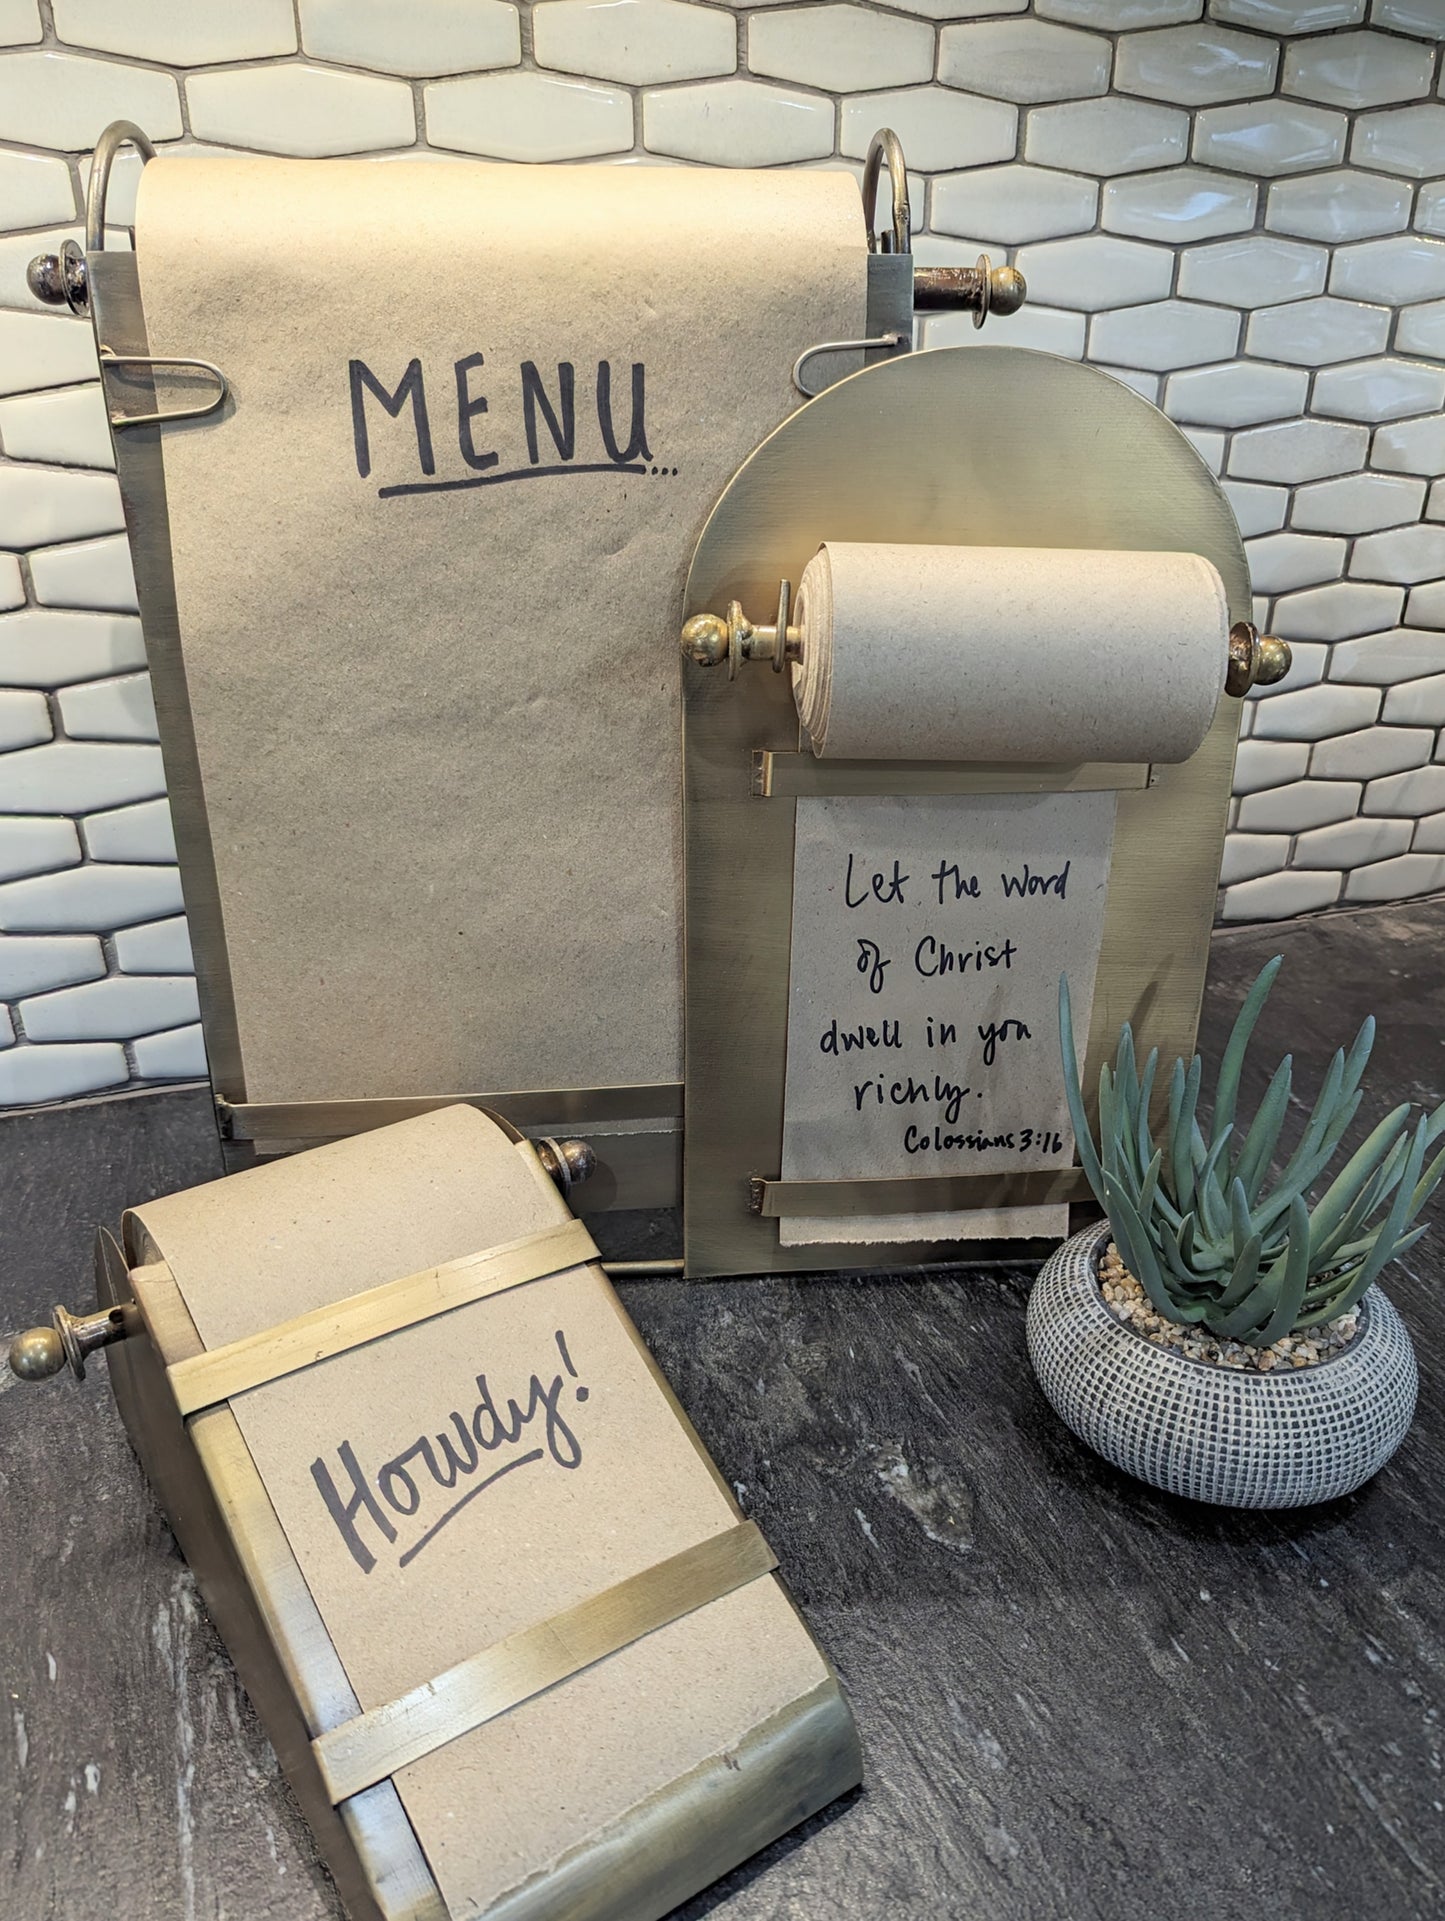 MENU...
Let the word
of Christ
dwell in you
richly.
Colossians 3:16
Howdy!